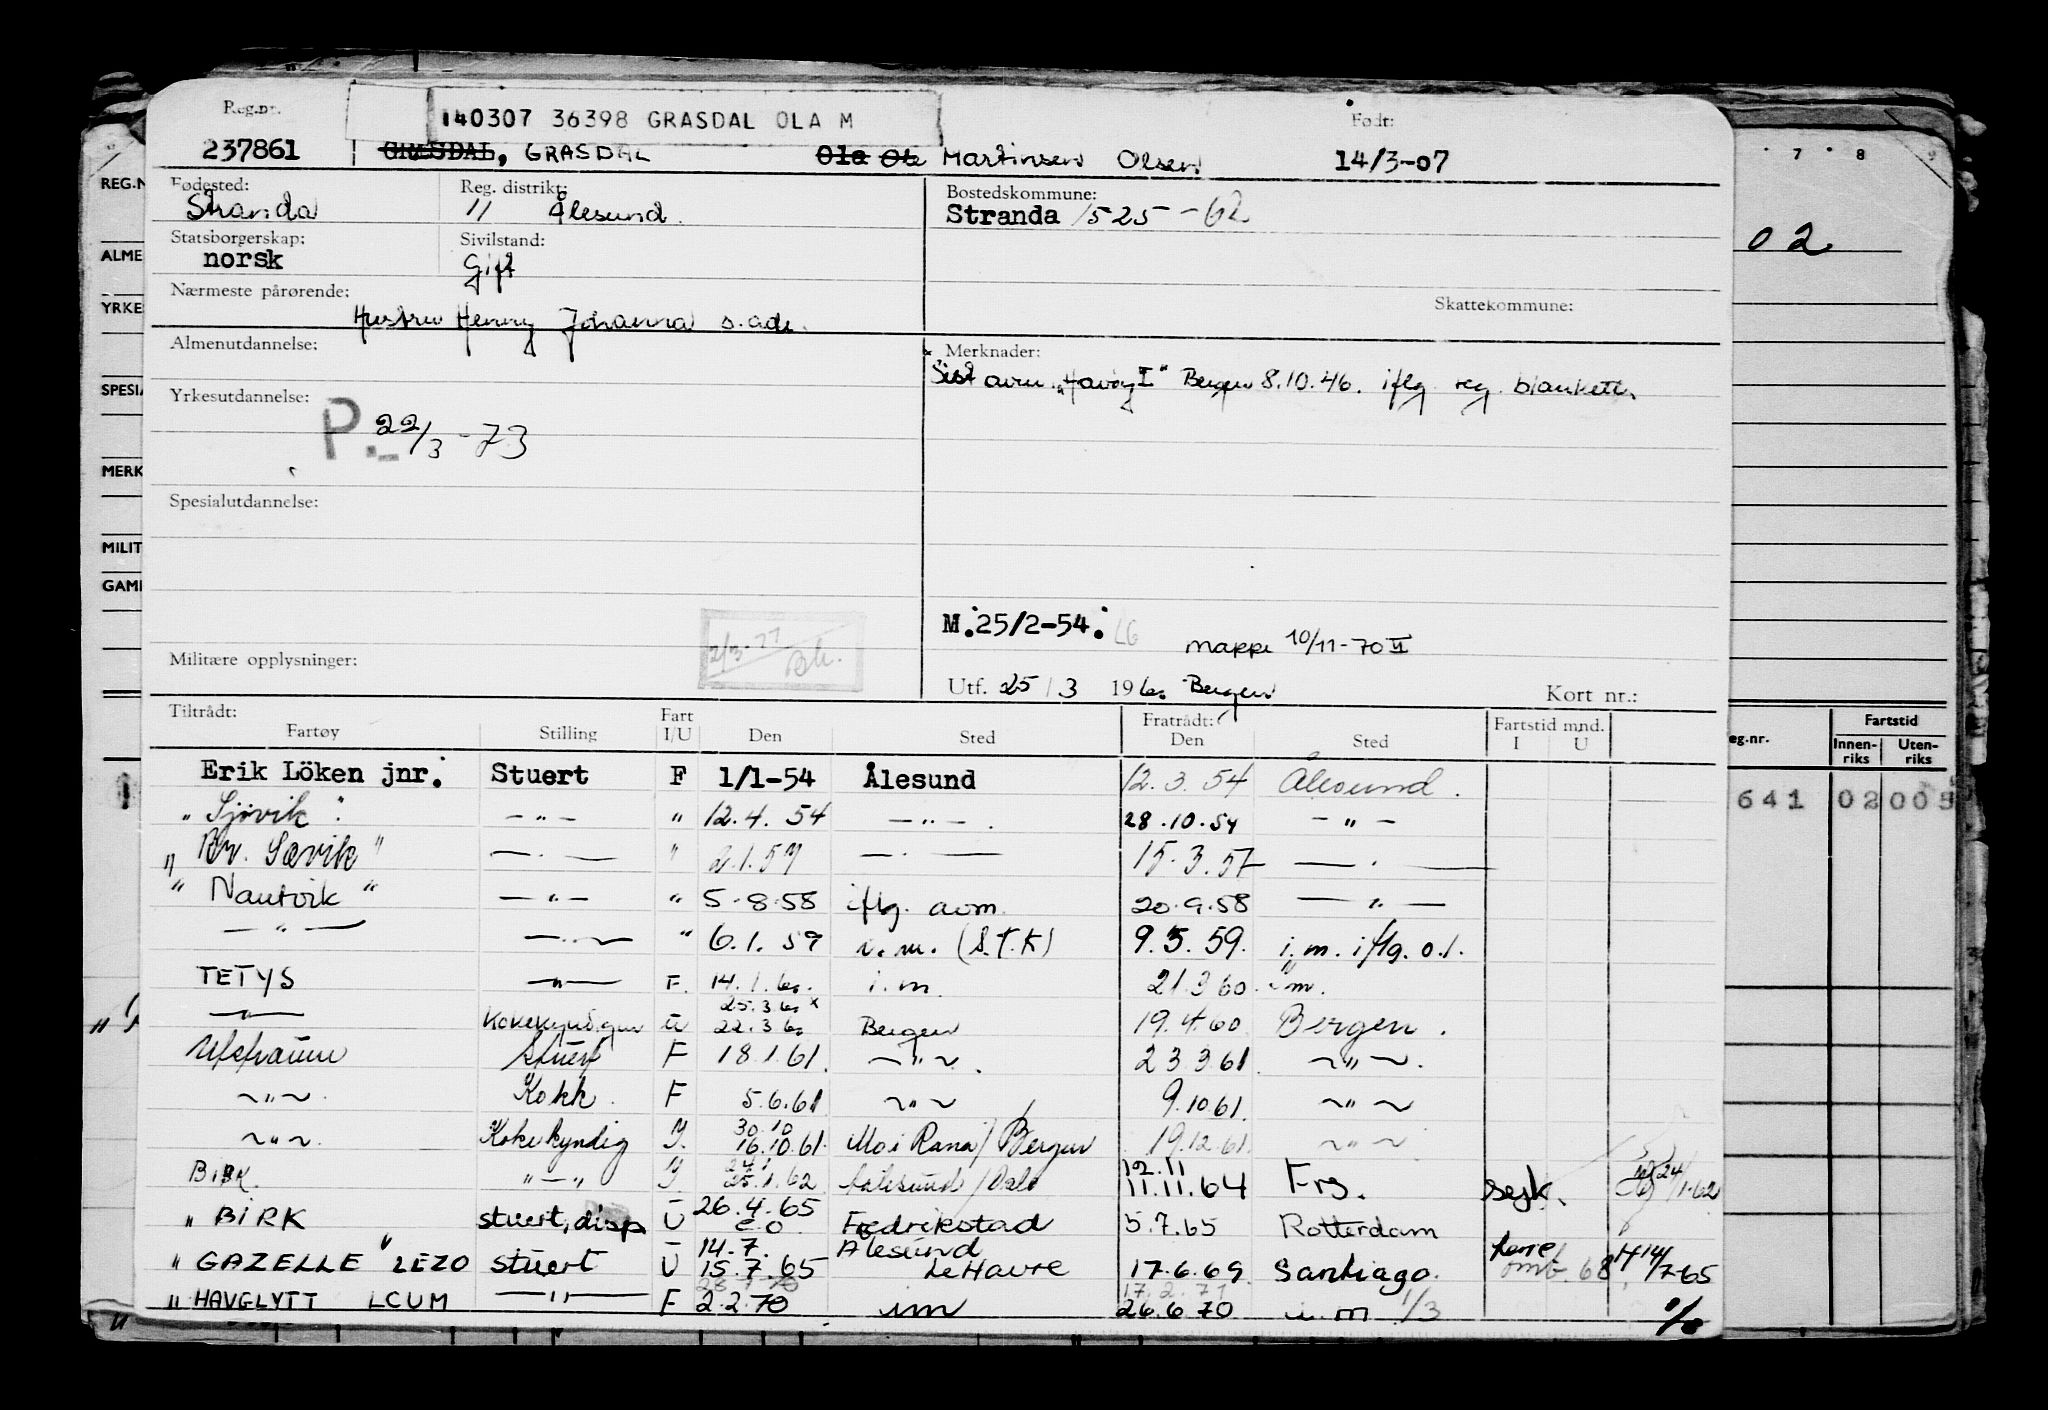 Reg.nr.
140307 36398 GRASDAL OLA M
Født:
237861 GRÆSDAL, GRASDAL Ola Ole Martinsen Olsen 14/3-07
Fødested: Reg. distrikt: Bostedskommune:
Stranda 11 Ålesund. Stranda 1525-62
Statsborgerskap: Sivilstand:
norsk Gift
Nærmeste pårørende: Skattekommune:
Hustru Henny Johanna s. adr.
Almenutdannelse: Merknader:
Sist avm. "Havøy I" Bergen 8.10.46. iflg. reg. blankett.
Yrkesutdannelse:
P. 22/3-73
Spesialutdannelse:
M. 25/2-54. LG
mappe 10/11-70 VI
2/3-77
Militære opplysninger:
Utf. 25/3 1960 Bergen Kort nr.:
Tiltrådt: Fart Fratrådt: Fartstid mnd.
Fartøy Stilling I/U Den Sted Den Sted I U
Erik Löken jnr. Stuert F 1/1-54 Ålesund 12.3.54 Ålesund.
"Sjøvik" -"- " 12.4.54 -"-. 28.10.54 -"-
"Br. Sævik" -"- " 2.1.57 -"- 15.3.57 -"-
"Nautvik" -"- " 5.8.58 iflg. avm. 20.9.58 -"-
-"- -"- " 6.1.59 i.m. (S.T.K) 9.5.59. i.m. iflg. o.l.
TETYS -"- F. 14.1.60. i.m. 21.3.60. i.m.
25.3.60 x
-"- Kokekyndigen U 22.3.60 Bergen 19.4.60 Bergen.
Ulstraum Stuert F 18.1.61. -"-. 23.3.61 -"-.
-"-. Kokk. F 5.6.61 -"- 9.10.61. -"-
30.10
-"-. Kokekyndig I. 16.10.61. Mo i Rana/Bergen 19.12.61. -"-
24.1 12.11
BIRK. "-" I 25.1.62 Aalesund/Oslo 11.11.64 Frs. sejk. 24/1-62
26.4.65
"BIRK stuert, disp U e.o Fredrikstad 5.7.65 Rotterdam
14.7. Alesund
"GAZELLE" LEZO stuert U 15.7.65 LeHavre 17.6.69. Santiago. 68 14/7-65
28.7.70 17.2.71
"HAVGLYTT LCUM -"- F 2.2.70 im 26.6.70 i.m 1/3
REG.N
ALME
YRKE
SPESI
MERK
MILIT
GAM
7 8 9
02
eg.nr. Fartstid
Innen-riks Uten-riks
641 02 005